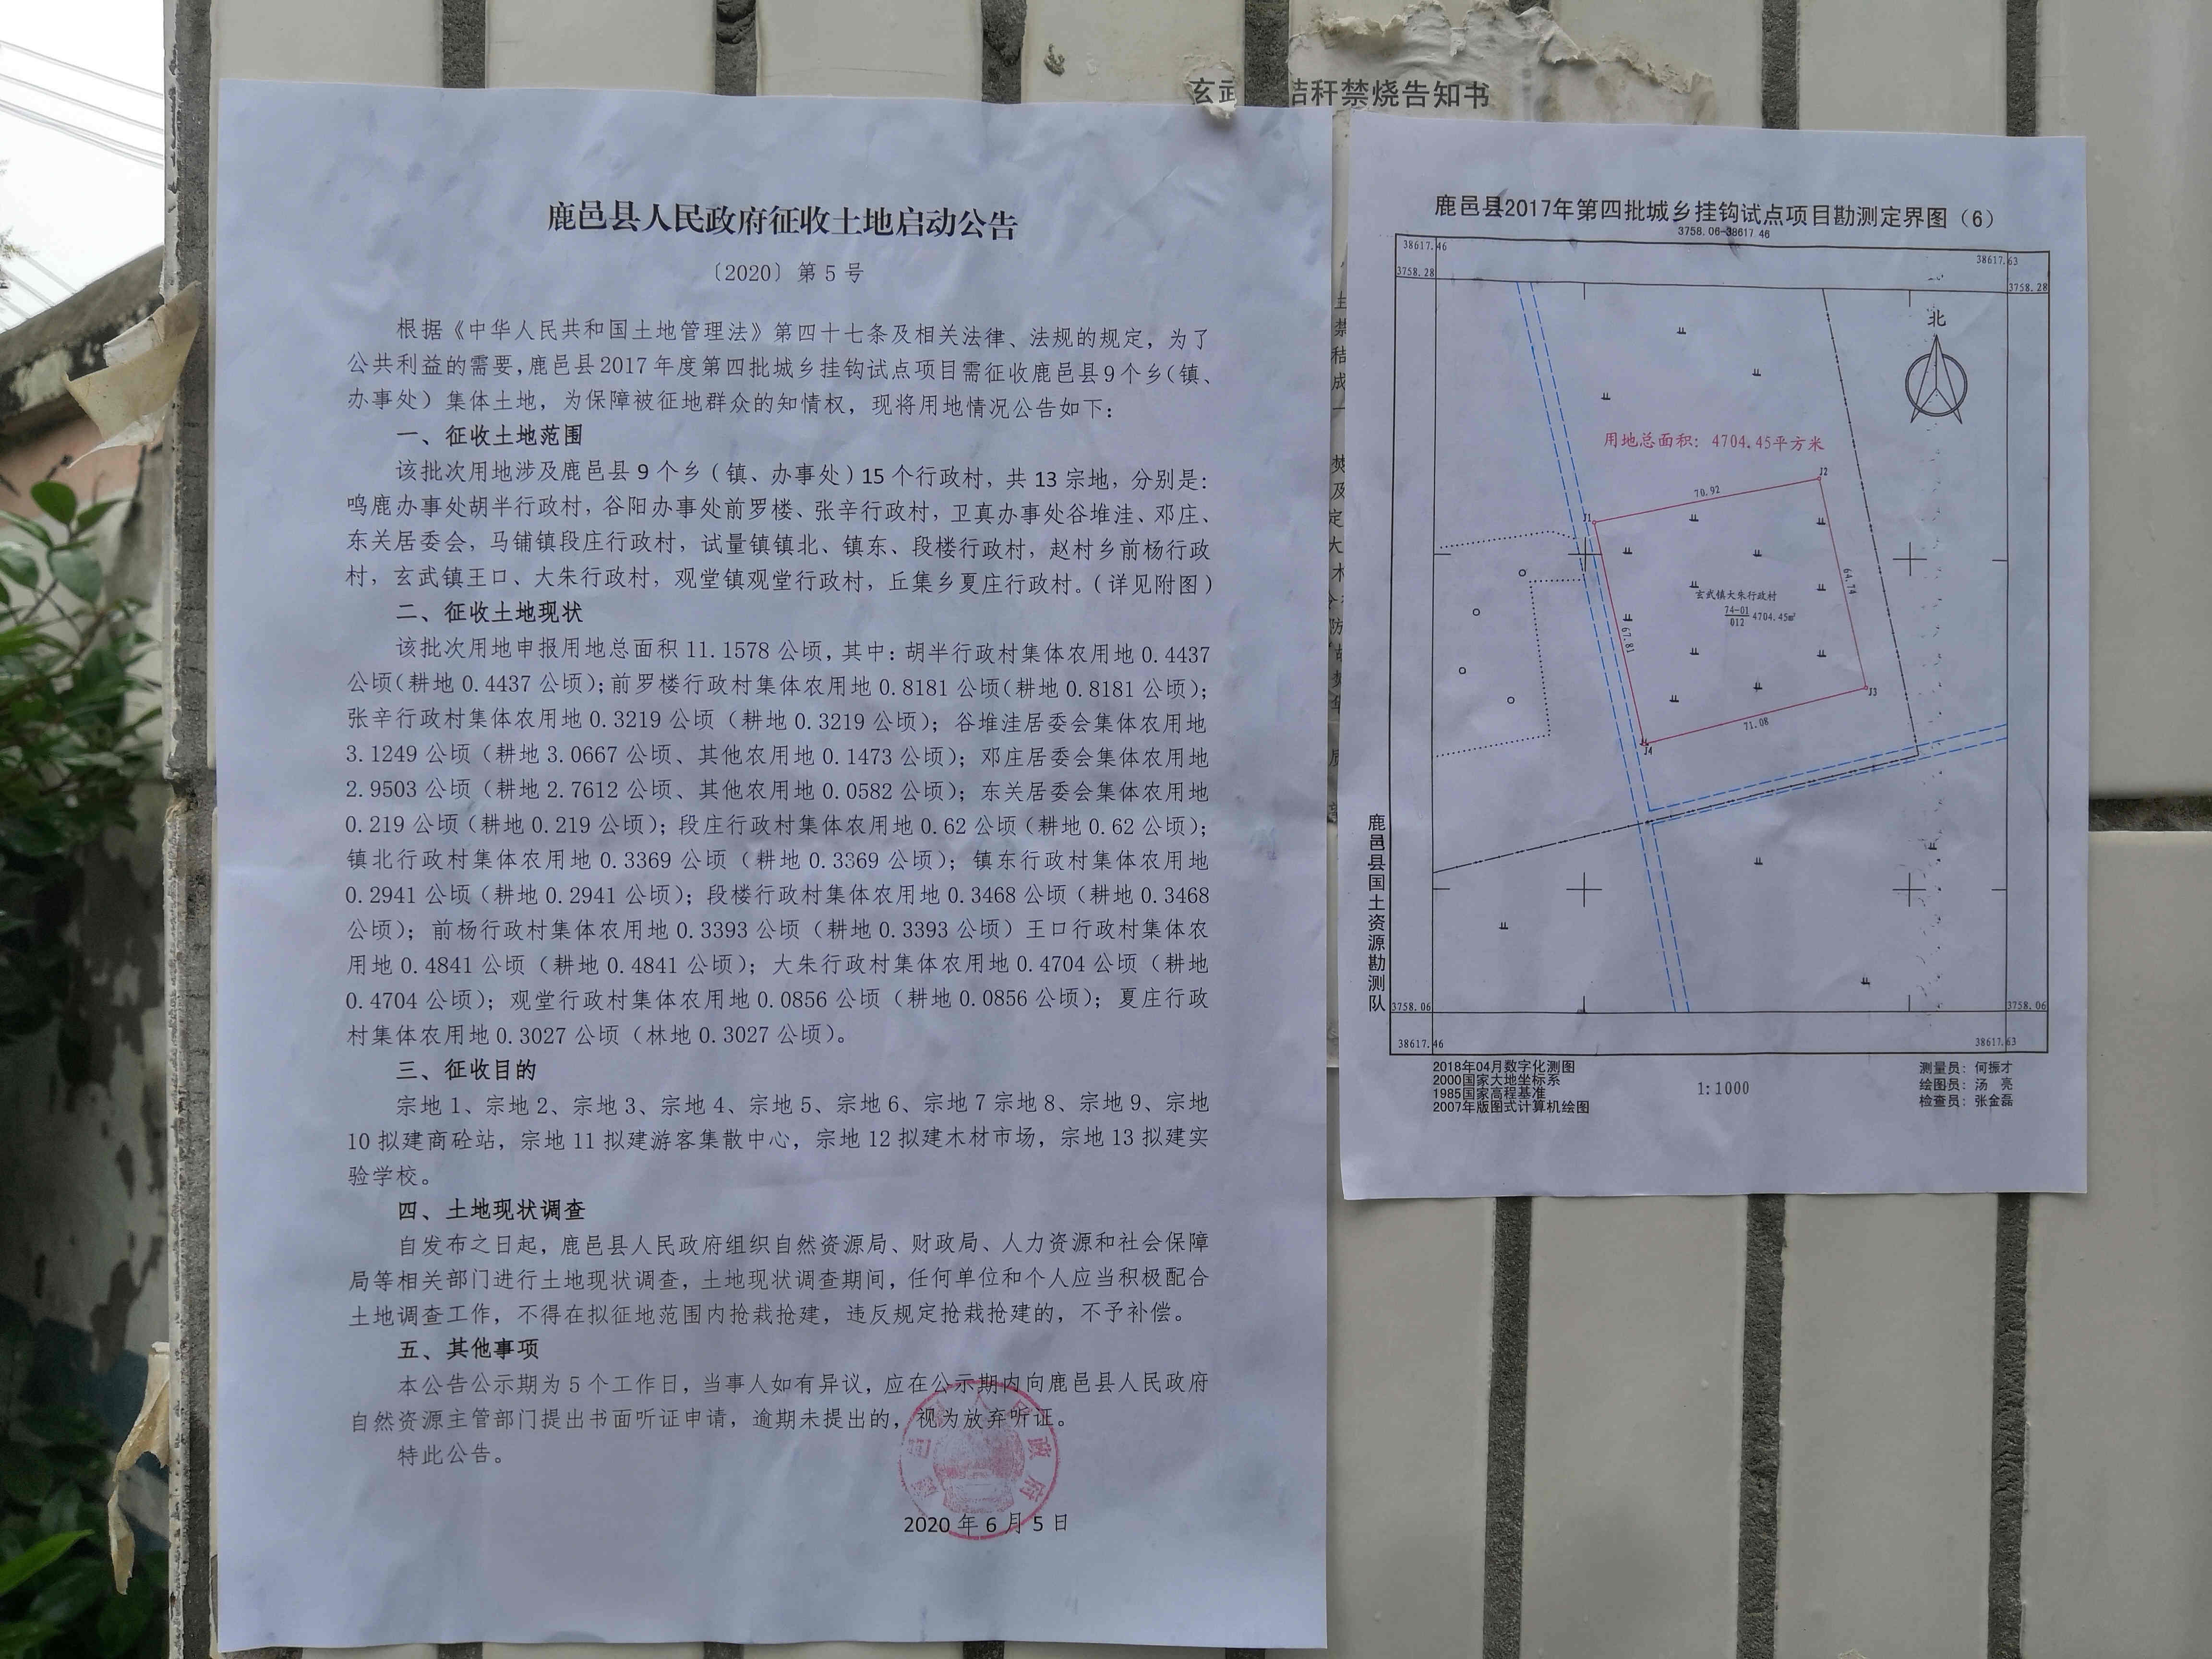 玄武
秸秆禁烧告知书
鹿邑县人民政府征收土地启动公告
〔2020〕第 5 号
根据《中华人民共和国土地管理法》第四十七条及相关法律、法规的规定，为了
公共利益的需要，鹿邑县2017 年度第四批城乡挂钩试点项目需征收鹿邑县9个乡（镇、
办事处）集体土地，为保障被征地群众的知情权，现将用地情况公告如下：
一、征收土地范围
该批次用地涉及鹿邑县 9 个乡（镇、办事处）15 个行政村，共 13 宗地，分别是：
鸣鹿办事处胡半行政村，谷阳办事处前罗楼、张辛行政村，卫真办事处谷堆洼、邓庄、
东关居委会，马铺镇段庄行政村，试量镇镇北、镇东、段楼行政村，赵村乡前杨行政
村，玄武镇王口、大朱行政村，观堂镇观堂行政村，丘集乡夏庄行政村。（详见附图）
二、征收土地现状
该批次用地申报用地总面积 11.1578 公顷，其中：胡半行政村集体农用地 0.4437
公顷（耕地 0.4437 公顷）；前罗楼行政村集体农用地 0.8181 公顷（耕地 0.8181 公顷）；
张辛行政村集体农用地 0.3219 公顷（耕地 0.3219 公顷）；谷堆洼居委会集体农用地
3.1249 公顷（耕地 3.0667 公顷、其他农用地 0.1473 公顷）；邓庄居委会集体农用地
2.9503 公顷（耕地 2.7612 公顷、其他农用地 0.0582 公顷）；东关居委会集体农用地
0.219 公顷（耕地 0.219 公顷）；段庄行政村集体农用地 0.62 公顷（耕地 0.62 公顷）；
镇北行政村集体农用地 0.3369 公顷（耕地 0.3369 公顷）；镇东行政村集体农用地
0.2941 公顷（耕地 0.2941 公顷）；段楼行政村集体农用地 0.3468 公顷（耕地 0.3468
公顷）；前杨行政村集体农用地 0.3393 公顷（耕地 0.3393 公顷）王口行政村集体农
用地 0.4841 公顷（耕地 0.4841 公顷）；大朱行政村集体农用地 0.4704 公顷（耕地
0.4704 公顷）；观堂行政村集体农用地 0.0856 公顷（耕地 0.0856 公顷）；夏庄行政
村集体农用地 0.3027 公顷（林地 0.3027 公顷）。
三、征收目的
宗地 1、宗地 2、宗地 3、宗地 4、宗地 5、宗地 6、宗地 7 宗地 8、宗地 9、宗地
10 拟建商砼站，宗地 11 拟建游客集散中心，宗地 12 拟建木材市场，宗地 13 拟建实
验学校。
四、土地现状调查
自发布之日起，鹿邑县人民政府组织自然资源局、财政局、人力资源和社会保障
局等相关部门进行土地现状调查，土地现状调查期间，任何单位和个人应当积极配合
土地调查工作，不得在拟征地范围内抢栽抢建，违反规定抢栽抢建的，不予补偿。
五、其他事项
本公告公示期为 5 个工作日，当事人如有异议，应在公示期内向鹿邑县人民政府
自然资源主管部门提出书面听证申请，逾期未提出的，视为放弃听证。
特此公告。
2020 年 6 月 5 日
鹿邑县2017年第四批城乡挂钩试点项目勘测定界图（6）
3758.06-38617.46
38617.46
38617.63
3758.28
3758.28
北
用地总面积：4704.45平方米
J2
70.92
J1
64.74
玄武镇大朱行政村
74-01
012
4704.45㎡
67.81
J3
71.08
J4
鹿邑县国土资源勘测队
3758.06
3758.06
38617.46
38617.63
2018年04月数字化测图
2000国家大地坐标系
1985国家高程基准
2007年版图式计算机绘图
1:1000
测量员：何振才
绘图员：汤 亮
检查员：张金磊